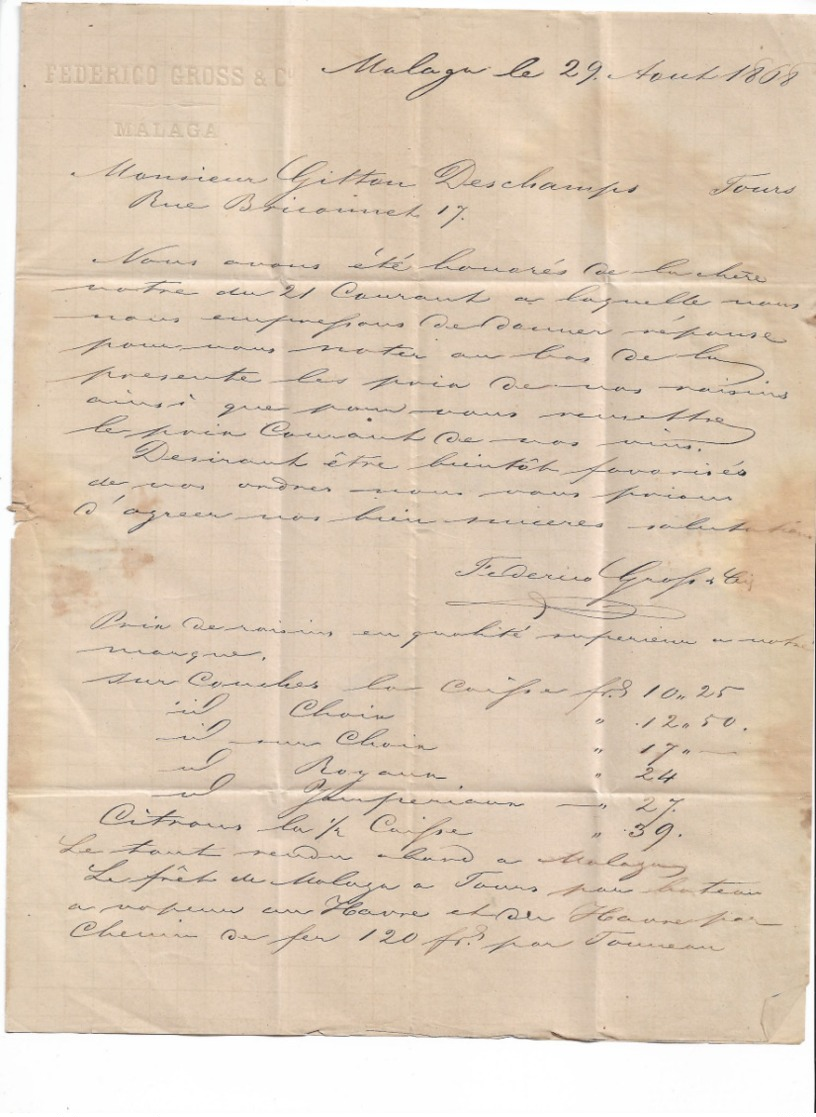 FEDERICO GROSS & Cº
MALAGA
Malaga le 29. Aout 1868
Monsieur Gitton Deschamps Tours
Rue Briconnet 17.
Nous avons été honorés de la chère
notre du 21 Courant a laquelle nous
nous empressons de donner réponse
pour vous noter au bas de la
presente les prix de nos raisins
ainsi que pour vous remettre
le prix Courant de nos vins.
Desirant être bientôt favorisés
de vos ordres nous vous prions
d'agreer nos bien sinceres salutations
Federico Gross & Cie
Prix de raisins en qualité superieur a notre
marque.
sur Couches la Caisse frs 10,, 25
id Choix " 12,, 50.
id sur Choix " 17,, —
id Royaux " 24
id Imperiaux — " 27.
Citrons la 1/2 Caisse " 39.
Le tout rendu abord a Malaga
Le frêt de Malaga a Tours par bateau
a vapeur au Havre et du Havre par
Chemin de fer 120 frs par Tonneau